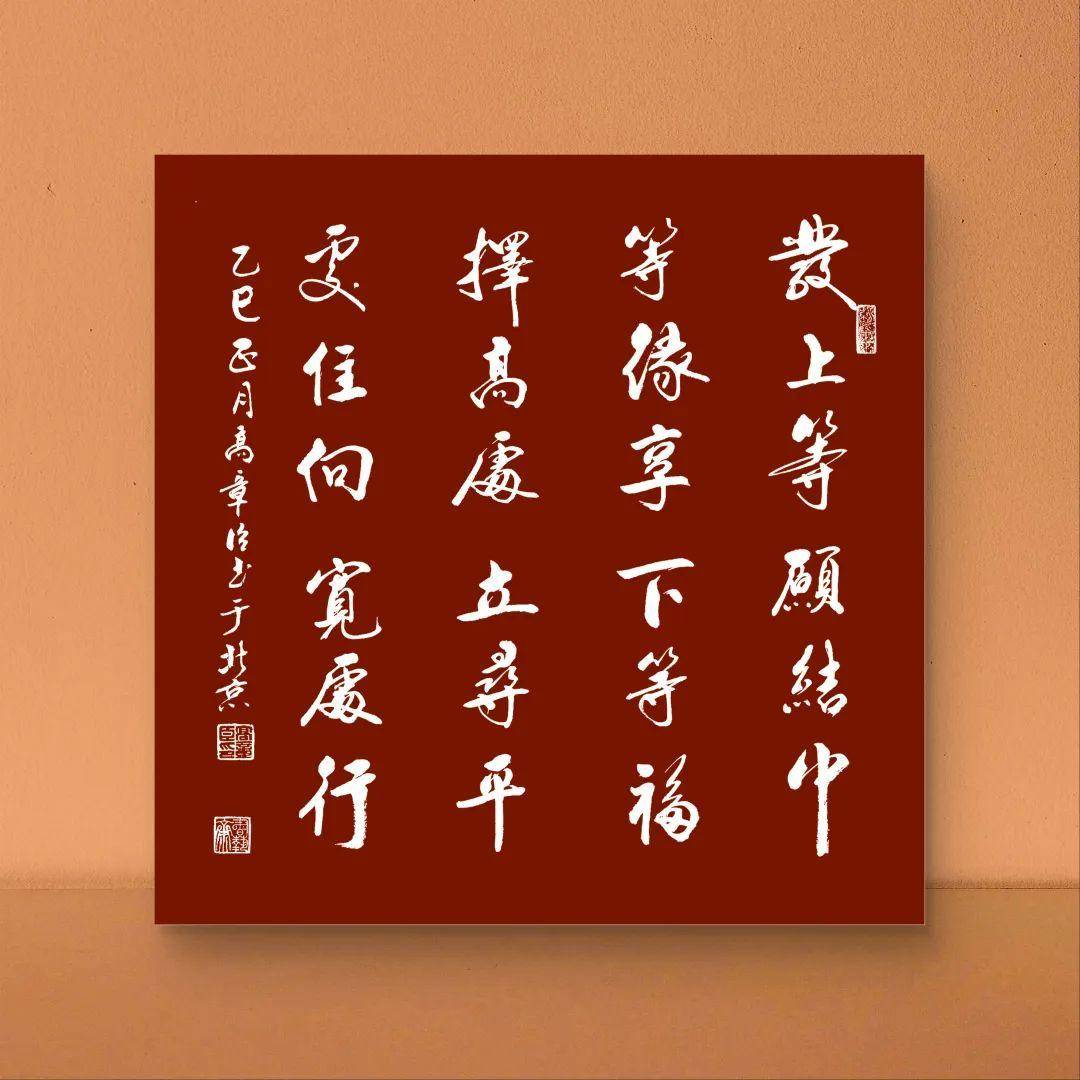 發上等願結中
等緣享下等福
擇高處立尋平
處住向寬處行
乙巳正月高章治书于北京